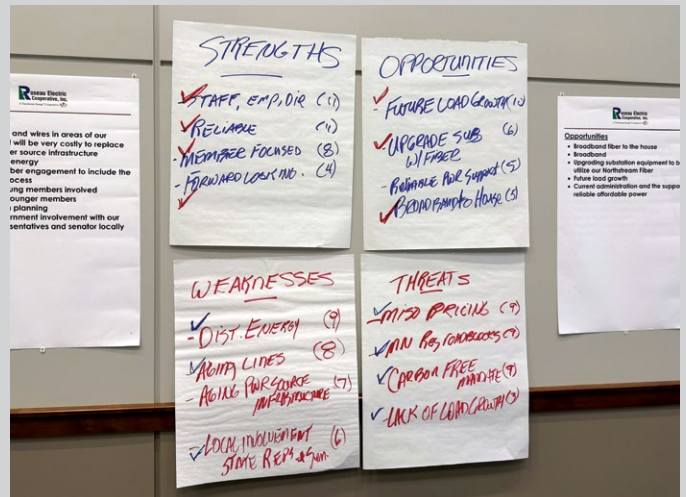 Roseau Electric
Cooperative, Inc.
and wires in areas of our
will be very costly to replace
er source infrastructure
energy
ber engagement to include the
ocess
ung members involved
ounger members
planning
rnment involvement with our
sentatives and senator locally
STRENGTHS
- STAFF, EMP, DIR (11)
- RELIABLE (11)
- MEMBER FOCUSED (8)
- FORWARD LOOKING. (4)
OPPORTUNITIES
- FUTURE LOAD GROWTH (10)
- UPGRADE SUB (6)
W/ FIBER
- RELIABLE PWR SUPPORT (5)
- BROADBAND TO HOUSE (5)
WEAKNESSES
- DIST. ENERGY (9)
- AGING LINES (8)
- AGING PWR SOURCE (7)
INFRASTRUCTURE
- LOCAL INVOLVEMENT (6)
STATE REPS & Sen.
THREATS
- MISO PRICING (9)
- MN REG ROADBLOCKS (9)
- CARBON FREE
MANDATE (9)
- LACK OF LOAD GROWTH (3)
Roseau Electric
Cooperative, Inc.
Opportunities
• Broadband fiber to the house
• Broadband
• Upgrading substation equipment to b
utilize our Northstream Fiber
• Future load growth
• Current administration and the suppo
reliable affordable power